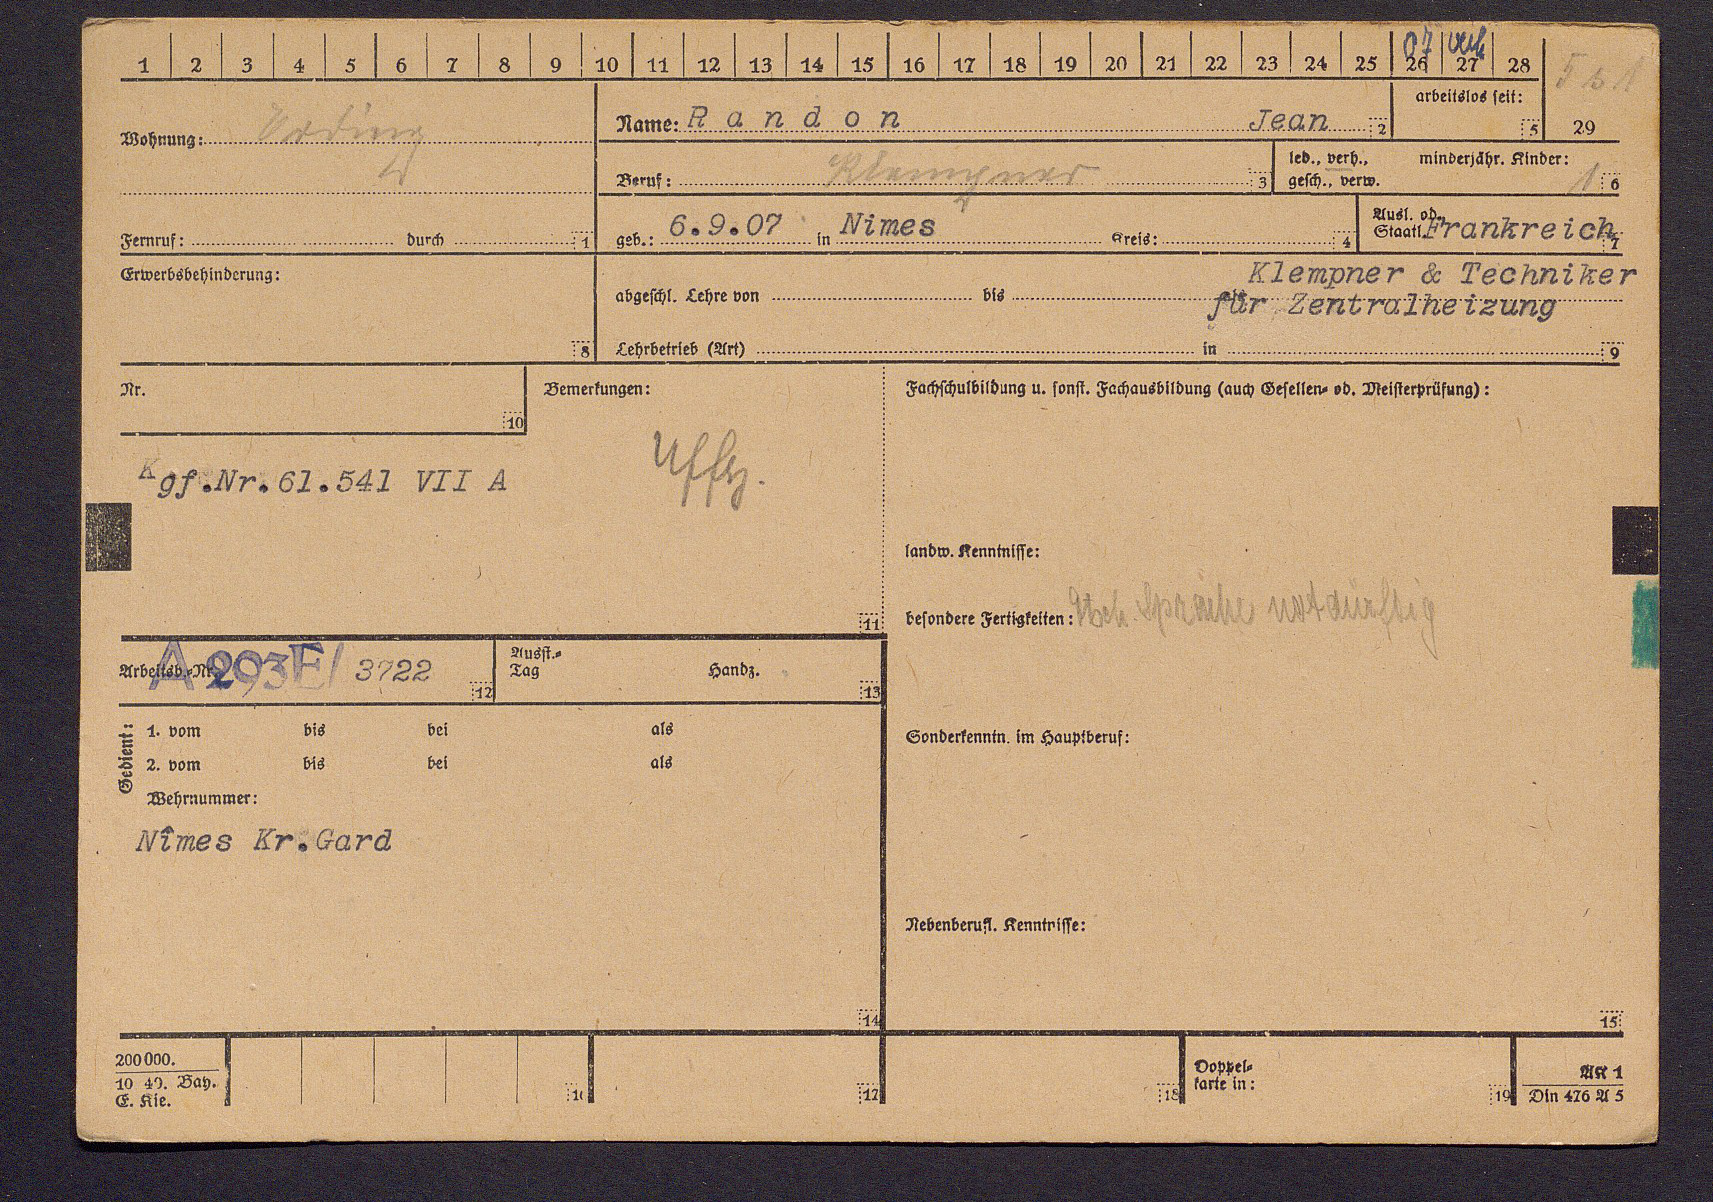 1 2 3 4 5 6 7 8 9 10 11 12 13 14 15 16 17 18 19 20 21 22 23 24 25 26 27 28
07 verh
arbeitslos seit:
5
29
Wohnung: Erding
Name: Randon Jean 2
Beruf: Klempner 3
led., verh., minderjähr. Kinder:
gesch., verw. 1 6
Fernruf: durch 1
geb.: 6.9.07 in Nimes Kreis: 4
Ausl. od.
Staatl. Frankreich 7
Erwerbsbehinderung:
8
Klempner & Techniker
abgeschl. Lehre von bis als
für Zentralheizung
Lehrbetrieb (Art) in 9
Nr.
10
Bemerkungen:
Uffz.
Kgf.Nr.61.541 VII A
11
Fachschulbildung u. sonst. Fachausbildung (auch Gesellen- od. Meisterprüfung):
landw. Kenntnisse:
besondere Fertigkeiten: dtsch. Sprache notdürftig
Sonderkenntn. im Hauptberuf:
Nebenberufl. Kenntnisse:
15
Arbeitsb.-Nr. A 293E/ 3722 12
Ausst.-
Tag Handz. 13
Gedient:
1. vom bis bei als
2. vom bis bei als
Wehrnummer:
Nîmes Kr.Gard
14
200000.
10 40. Bay.
E. Kie.
16
17
18
Doppel-
karte in:
19
AK 1
Din 476 A 5